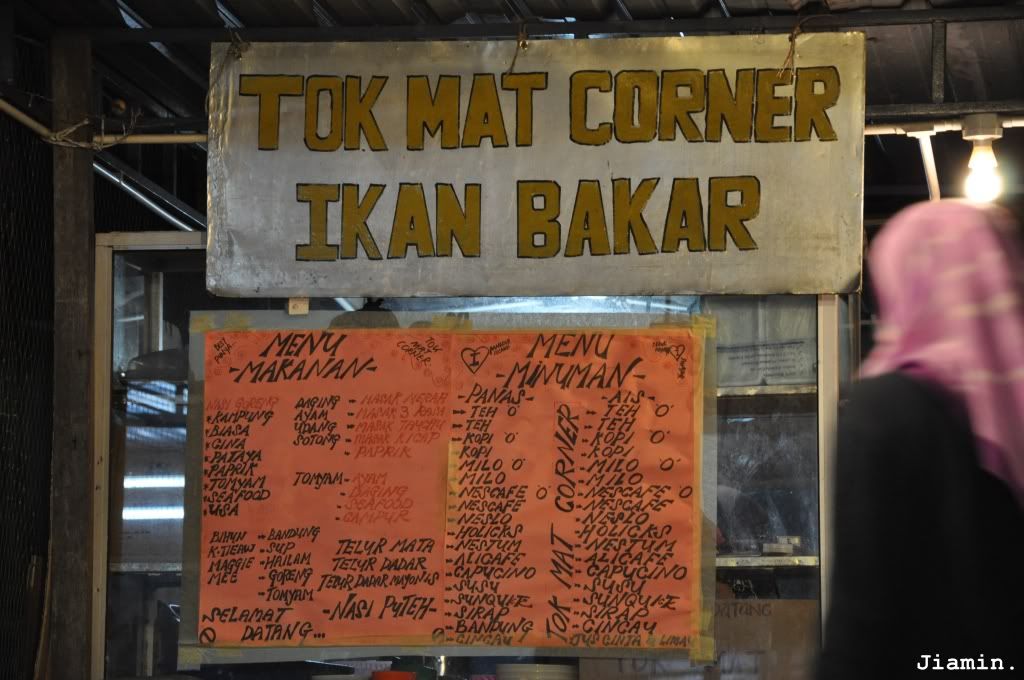 TOK MAT CORNER
IKAN BAKAR
MENU
-MAKANAN-
TOK
MAT
CORNER
NASI GORENG
*KAMPUNG
*BIASA
*CINA
*PATAYA
*PAPRIK
*TOMYAM
*SEAFOOD
*USA
DAGING
AYAM
UDANG
SOTONG
-MASAK MERAH
-MASAK 3 RASA
-MASAK KICAP
-PAPRIK
TOMYAM
-AYAM
-DAGING
-SEAFOOD
-CAMPUR
BIHUN
K.TIEAW
MAGGIE
MEE
-BANDUNG
-SUP
-HAILAM
-GORENG
-TOMYAM
TELUR MATA
TELUR DADAR
TELUR DADAR MAYONIS
-NASI PUTEH-
SELAMAT
DATANG...
MENU
-MINUMAN-
-PANAS-
-TEH O
-TEH
-KOPI O
-KOPI
-MILO O
-MILO
-NESCAFE O
-NESCAFE
-NESLO
-HOLICKS
-NESTUM
-ALICAFE
-CAPUCINO
-SUSU
-SUNQUIZE
-SIRAP
-BANDUNG
-CINCAU
TOK MAT CORNER
-AIS-
-TEH O
-TEH
-KOPI O
-KOPI
-MILO O
-MILO
-NESCAFE O
-NESCAFE
-NESLO
-HOLICKS
-NESTUM
-ALICAFE
-CAPUCINO
-SUSU
-SUNQUIZE
-SIRAP
-CINCAU
DATANG
Jiamin.